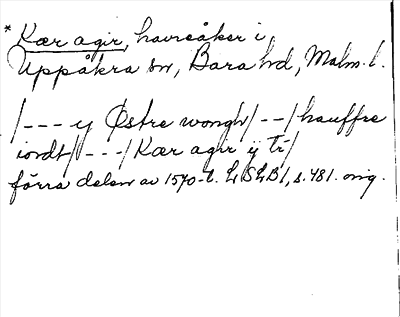 * Kær agir, havreåker i
Uppåkra sn, Bara hd, Malm. l.
/--- y Østre wongh/--/hauffre
iordt/---/Kær agir ij tr/
förra delen av 1570-t. LSLB1, s. 481. orig.